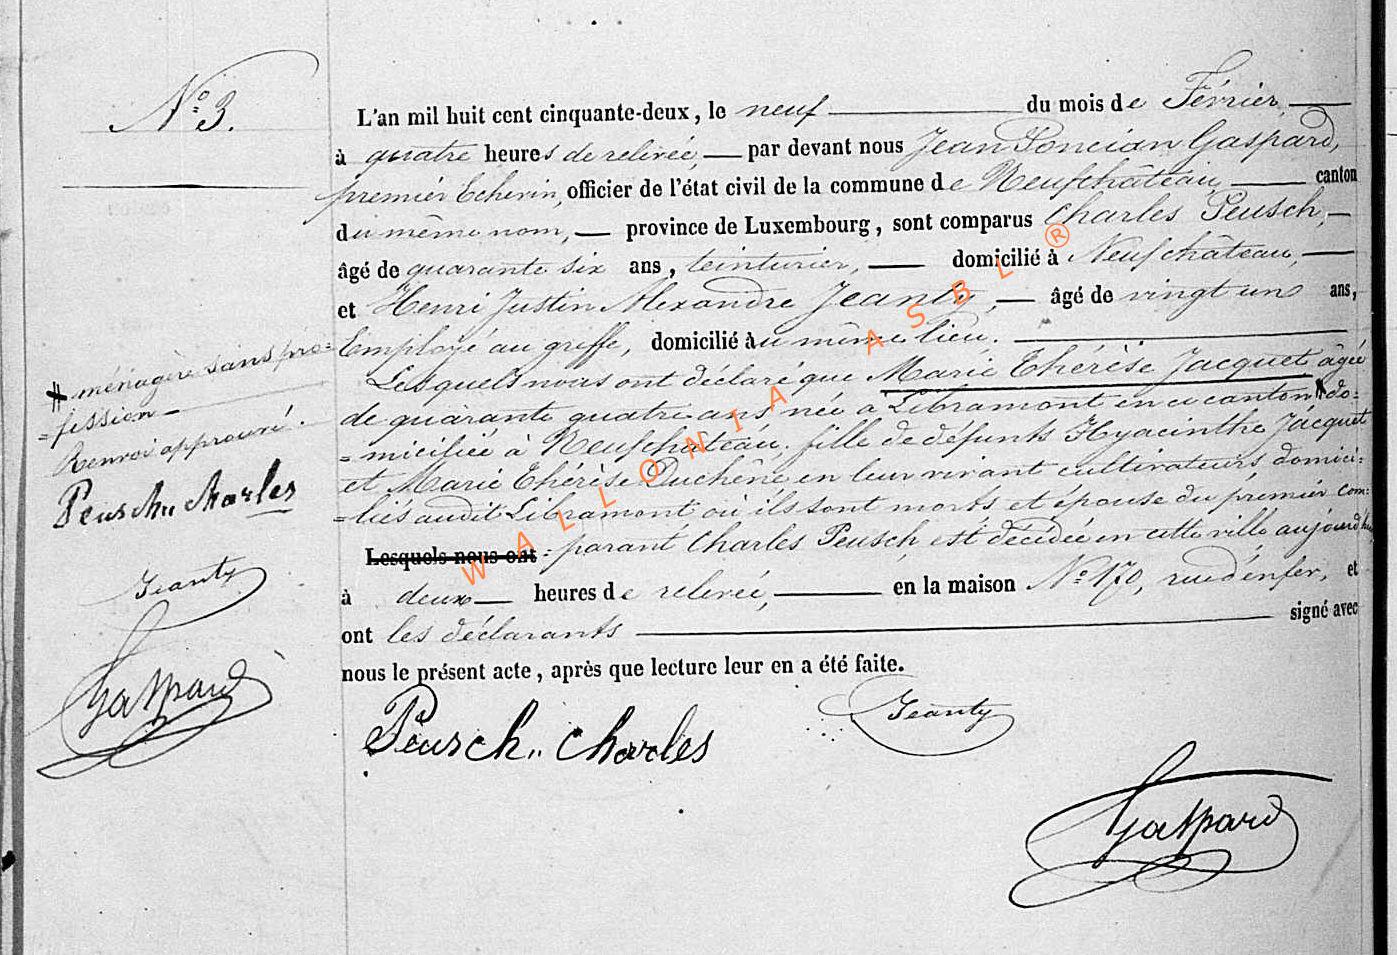 N.º 3.
L'an mil huit cent cinquante-deux, le neuf du mois de Février
à quatre heures de relevée, par devant nous Jean Poncian Gaspard,
premier Echevin, officier de l'état civil de la commune de Neufchâteau, canton
du même nom, province de Luxembourg, sont comparus Charles Peusch,
âgé de quarante six ans, teinturier, domicilié à Neufchâteau,
et Henri Justin Alexandre Jeanty, âgé de vingt un ans,
Employé au greffe, domicilié au même lieu.
Lesquels nous ont déclaré que Marie Thérèse Jacquet âgée
de quarante quatre ans née à Libramont en ce canton # do=
=miciliée à Neufchâteau, fille de défunts Hyacinthe Jacquet
et Marie Thérèse Duchêne en leur vivant cultivateurs domici=
=liés audit Libramont où ils sont morts et épouse du premier com=
Lesquels nous ont =parant Charles Peusch est décédée en cette ville aujourd'hui
à deux heures de relevée, en la maison N.º 170, rue d'enfer, et
ont les déclarants signé avec
nous le présent acte, après que lecture leur en a été faite.
Peusch,, Charles
Jeanty
Gaspard
# ménagère sans pro=
=fession
Renvoi approuvé.
Peusch,, Charles
Jeanty
Gaspard
WALLONIA ASBL ®